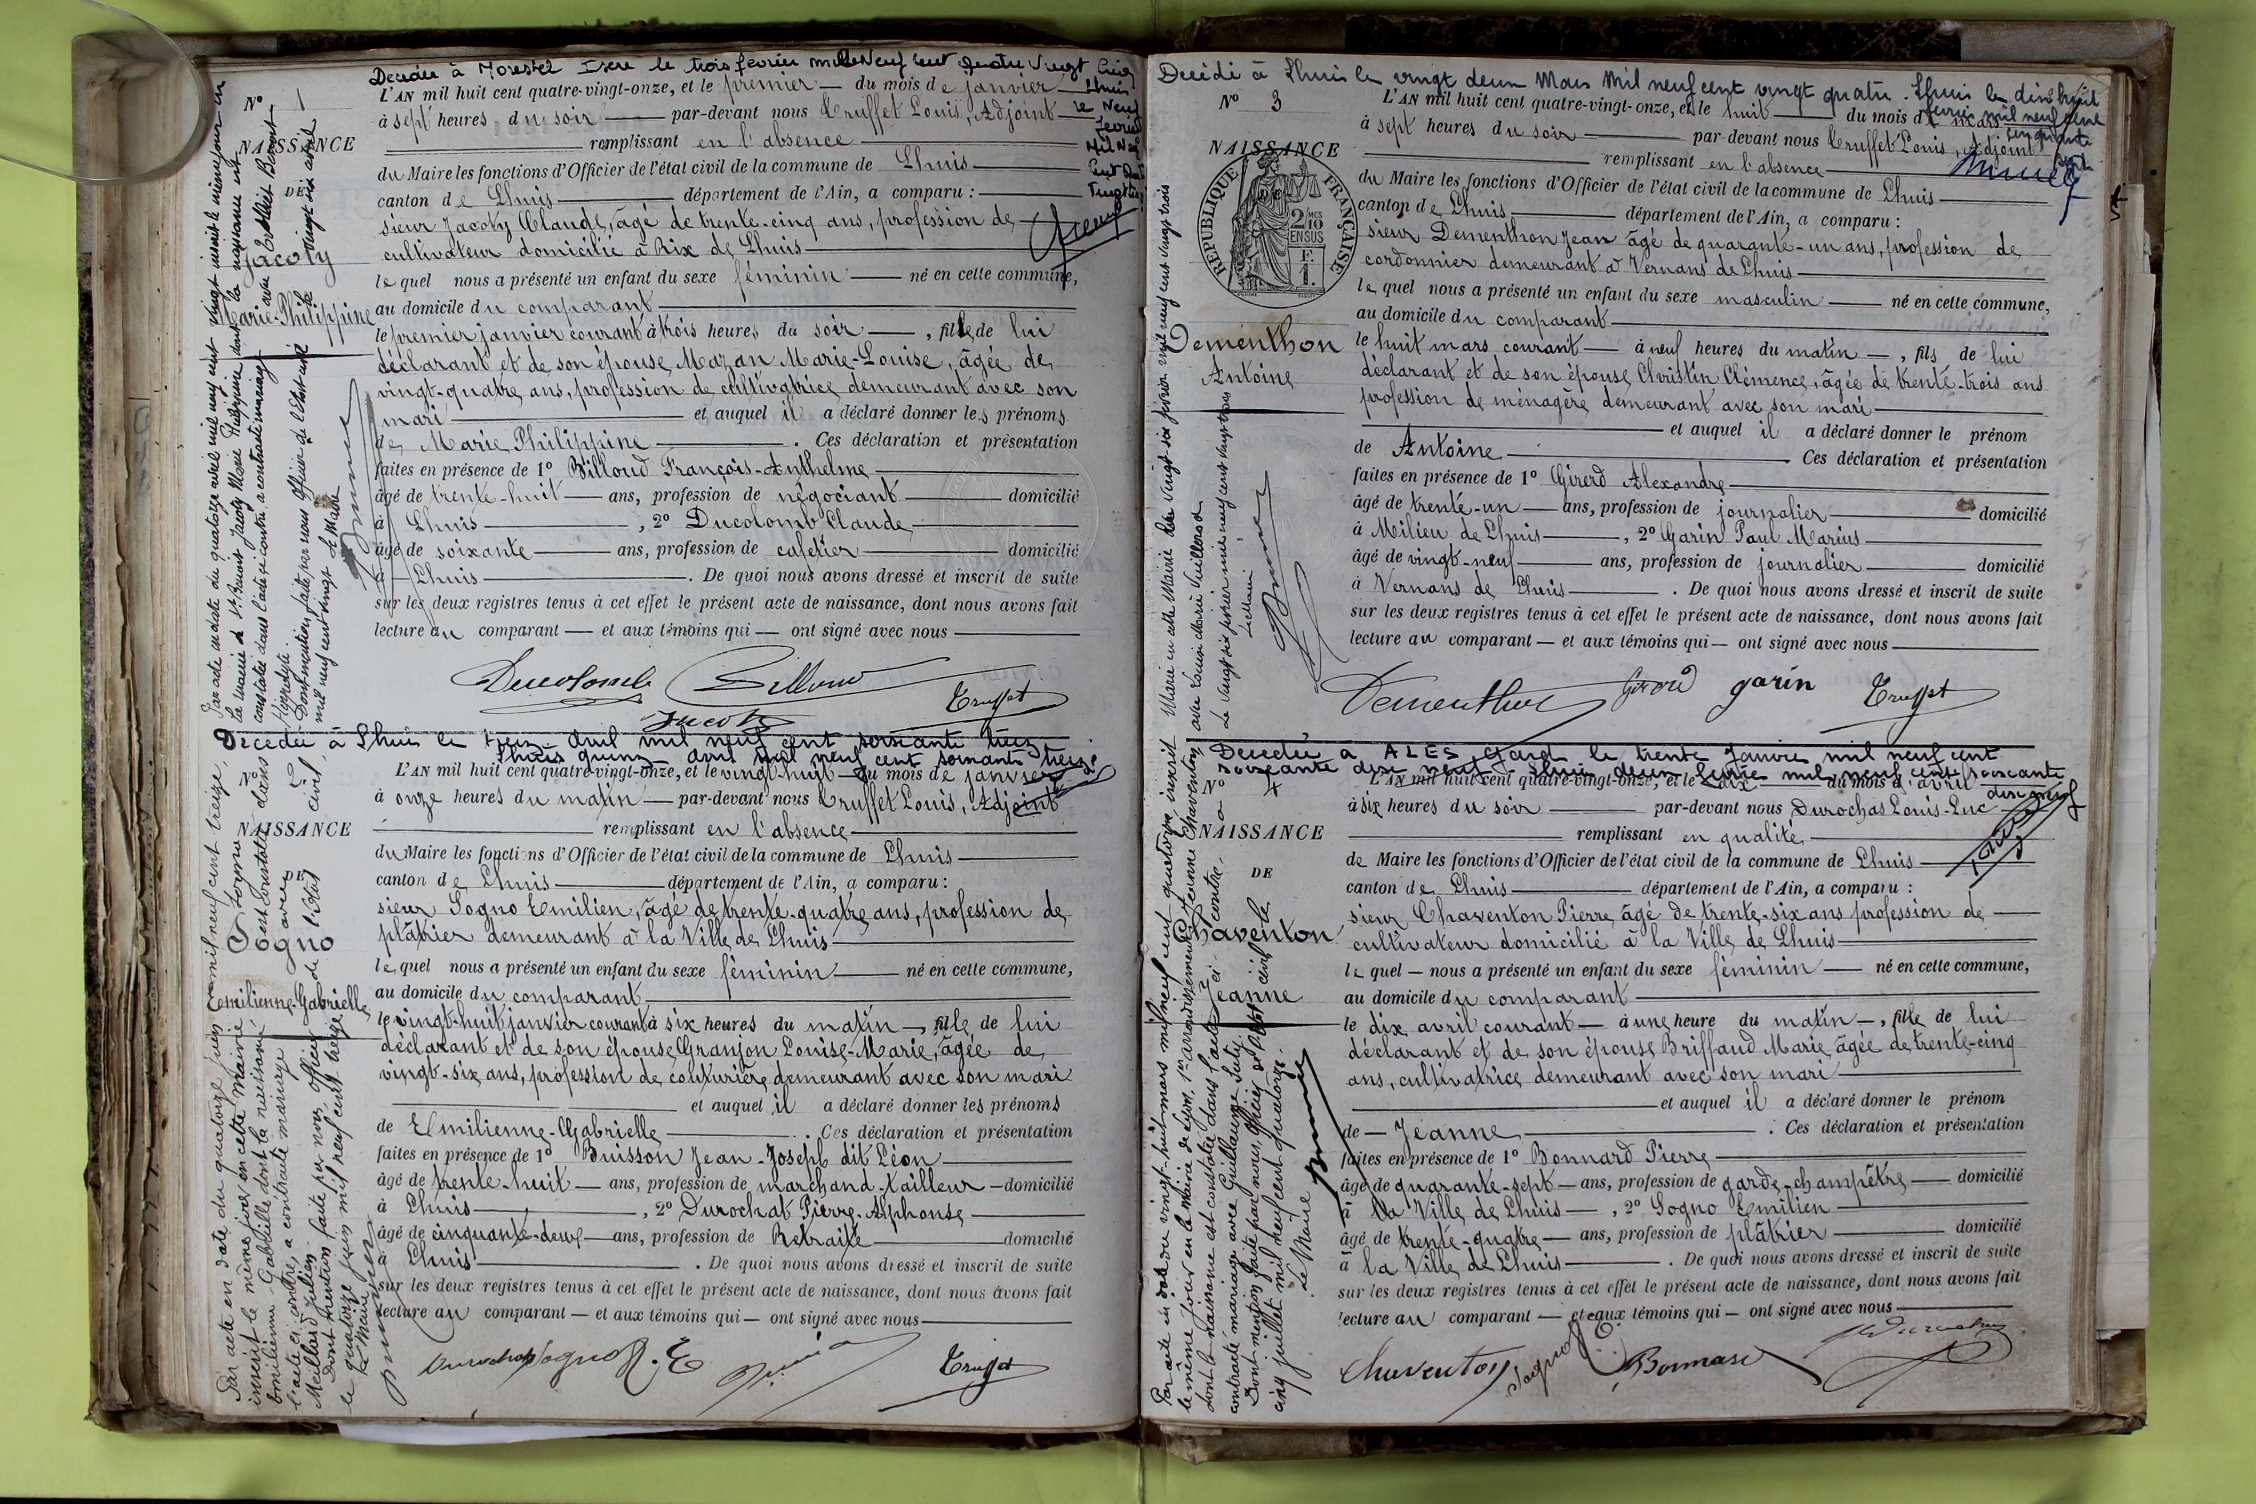 Décédée à Morestel Isère le trois février mil Neuf cent quatre Vingt Cinq
Lhuis
Le Neuf
Février
Mil Neuf
Cent
N° 1
NAISSANCE
DE
Jacoty
Marie-Philippine
L'AN mil huit cent quatre-vingt-onze, et le premier du mois de janvier
à sept heures du soir par-devant nous Truffet Louis, Adjoint
remplissant en l'absence
du Maire les fonctions d'Officier de l'état civil de la commune de Lhuis
canton de Lhuis département de l'Ain, a comparu :
sieur Jacoty Claude, âgé de trente-cinq ans, profession de
cultivateur domicilié à Rix de Lhuis
lequel nous a présenté un enfant du sexe féminin né en cette commune,
au domicile du comparant
le premier janvier courant à trois heures du soir, fille de lui
déclarant et de son épouse Mazan Marie-Louise, âgée de
vingt-quatre ans, profession de cultivatrice demeurant avec son
mari et auquel il a déclaré donner les prénoms
de Marie Philippine. Ces déclaration et présentation
faites en présence de 1° Billoud François-Anthelme
âgé de trente-huit ans, profession de négociant domicilié
à Lhuis, 2° Ducolomb Claude
âgé de soixante ans, profession de cafetier domicilié
à Lhuis. De quoi nous avons dressé et inscrit de suite
sur les deux registres tenus à cet effet le présent acte de naissance, dont nous avons fait
lecture au comparant et aux témoins qui ont signé avec nous
Ducolomb Billoud
Jacoty Truffet
Par acte en date du quatorze avril mil neuf cent vingt inscrit le même jour en
la mairie de St Benoit Jacoty Marie Philippine dont la naissance est
constatée dans l'acte ci-contre a contracté mariage avec
Hippolyte.
Dont mention faite par nous officier de l'Etat civil le vingt six avril
mil neuf cent vingt. Le Maire
Décédée à Lhuis le treize avril mil neuf cent soixante treize
Lhuis quinze avril mil neuf cent soixante treize
N°
NAISSANCE
DE
Sogno
Emilienne-Gabrielle
L'AN mil huit cent quatre-vingt-onze, et le vingt-huit du mois de janvier
à onze heures du matin par-devant nous Truffet Louis, Adjoint
remplissant en l'absence
du Maire les fonctions d'Officier de l'état civil de la commune de Lhuis
canton de Lhuis département de l'Ain, a comparu :
sieur Sogno Emilien, âgé de trente-quatre ans, profession de
plâtrier demeurant à la Ville de Lhuis
lequel nous a présenté un enfant du sexe féminin né en cette commune,
au domicile du comparant
le vingt-huit janvier courant à six heures du matin, fille de lui
déclarant et de son épouse Granjon Louise-Marie, âgée de
vingt-six ans, profession de couturière demeurant avec son mari
et auquel il a déclaré donner les prénoms
de Emilienne-Gabrielle. Ces déclaration et présentation
faites en présence de 1° Buisson Jean-Joseph dit Léon
âgé de trente-huit ans, profession de marchand-tailleur domicilié
à Lhuis, 2° Durochat Pierre-Alphonse
âgé de cinquante-deux ans, profession de Retraité domicilié
à Lhuis. De quoi nous avons dressé et inscrit de suite
sur les deux registres tenus à cet effet le présent acte de naissance, dont nous avons fait
lecture au comparant et aux témoins qui ont signé avec nous
Durochat Sogno E Truffet
Par acte en date du quatorze juin mil neuf cent treize,
inscrit le même jour en cette mairie Sogno
Emilienne Gabrielle dont la naissance est constatée dans
l'acte ci-contre, a contracté mariage avec
Meillard Julien.
Dont mention faite par nous officier de l'Etat civil,
le quatorze juin mil neuf cent treize
Le Maire
Décédé à Lhuis le vingt deux Mars mil neuf cent vingt quatre. Lhuis le dix huit
février mil neuf cent
cinquante
N° 3
NAISSANCE
DE
RÉPUBLIQUE FRANÇAISE
2/10 MES
EN SUS
1 F.
Dementhon
Antoine
L'AN mil huit cent quatre-vingt-onze, et le huit du mois de mars
à sept heures du soir par-devant nous Truffet Louis, Adjoint
remplissant en l'absence
du Maire les fonctions d'Officier de l'état civil de la commune de Lhuis
canton de Lhuis département de l'Ain, a comparu :
sieur Dementhon Jean âgé de quarante-un ans, profession de
cordonnier demeurant à Vernans de Lhuis
lequel nous a présenté un enfant du sexe masculin né en cette commune,
au domicile du comparant
le huit mars courant à neuf heures du matin, fils de lui
déclarant et de son épouse Christin Clémence, âgée de trente-trois ans
profession de ménagère demeurant avec son mari
et auquel il a déclaré donner le prénom
de Antoine. Ces déclaration et présentation
faites en présence de 1° Girerd Alexandre
âgé de trente-un ans, profession de journalier domicilié
à Milieu de Lhuis, 2° Garin Paul Marius
âgé de vingt-neuf ans, profession de journalier domicilié
à Vernans de Lhuis. De quoi nous avons dressé et inscrit de suite
sur les deux registres tenus à cet effet le présent acte de naissance, dont nous avons fait
lecture au comparant et aux témoins qui ont signé avec nous
Dementhon Girerd garin Truffet
Marié en cette Mairie le vingt-six février mil neuf cent vingt trois
avec Louise Marie Vuillerod
Le vingt six février mil neuf cent vingt trois
Le Maire
Décédée à ALES Gard le trente Janvier mil neuf cent
soixante dix neuf Lhuis deux Février mil neuf cent soixante
dix neuf
N° 4
NAISSANCE
DE
Chaventon
Jeanne
L'AN mil huit cent quatre-vingt-onze, et le dix du mois d'avril
à six heures du soir par-devant nous Durochat Louis-Luc
remplissant en qualité
de Maire les fonctions d'Officier de l'état civil de la commune de Lhuis
canton de Lhuis département de l'Ain, a comparu :
sieur Chaventon Pierre, âgé de trente-six ans profession de
cultivateur domicilié à la Ville de Lhuis
lequel nous a présenté un enfant du sexe féminin né en cette commune,
au domicile du comparant
le dix avril courant à une heure du matin, fille de lui
déclarant et de son épouse Briffaud Marie, âgée de trente-cinq
ans, cultivatrice demeurant avec son mari
et auquel il a déclaré donner le prénom
de Jeanne. Ces déclaration et présentation
faites en présence de 1° Bonnard Pierre
âgé de quarante-sept ans, profession de garde-champêtre domicilié
à la Ville de Lhuis, 2° Sogno Emilien
âgé de trente-quatre ans, profession de plâtrier domicilié
à la Ville de Lhuis. De quoi nous avons dressé et inscrit de suite
sur les deux registres tenus à cet effet le présent acte de naissance, dont nous avons fait
lecture au comparant et aux témoins qui ont signé avec nous
Chaventon Sogno E Bonnard
Par acte en date du vingt-huit mars mil neuf cent quatorze inscrit
le même jour en la Mairie de Lyon, 1er arrondissement Jeanne Chaventon
dont la naissance est constatée dans l'acte ci-contre, a
contracté mariage avec Guillaume
Dont mention faite par nous, Officier de l'Etat civil le
cinq juillet mil neuf cent quatorze.
Le Maire